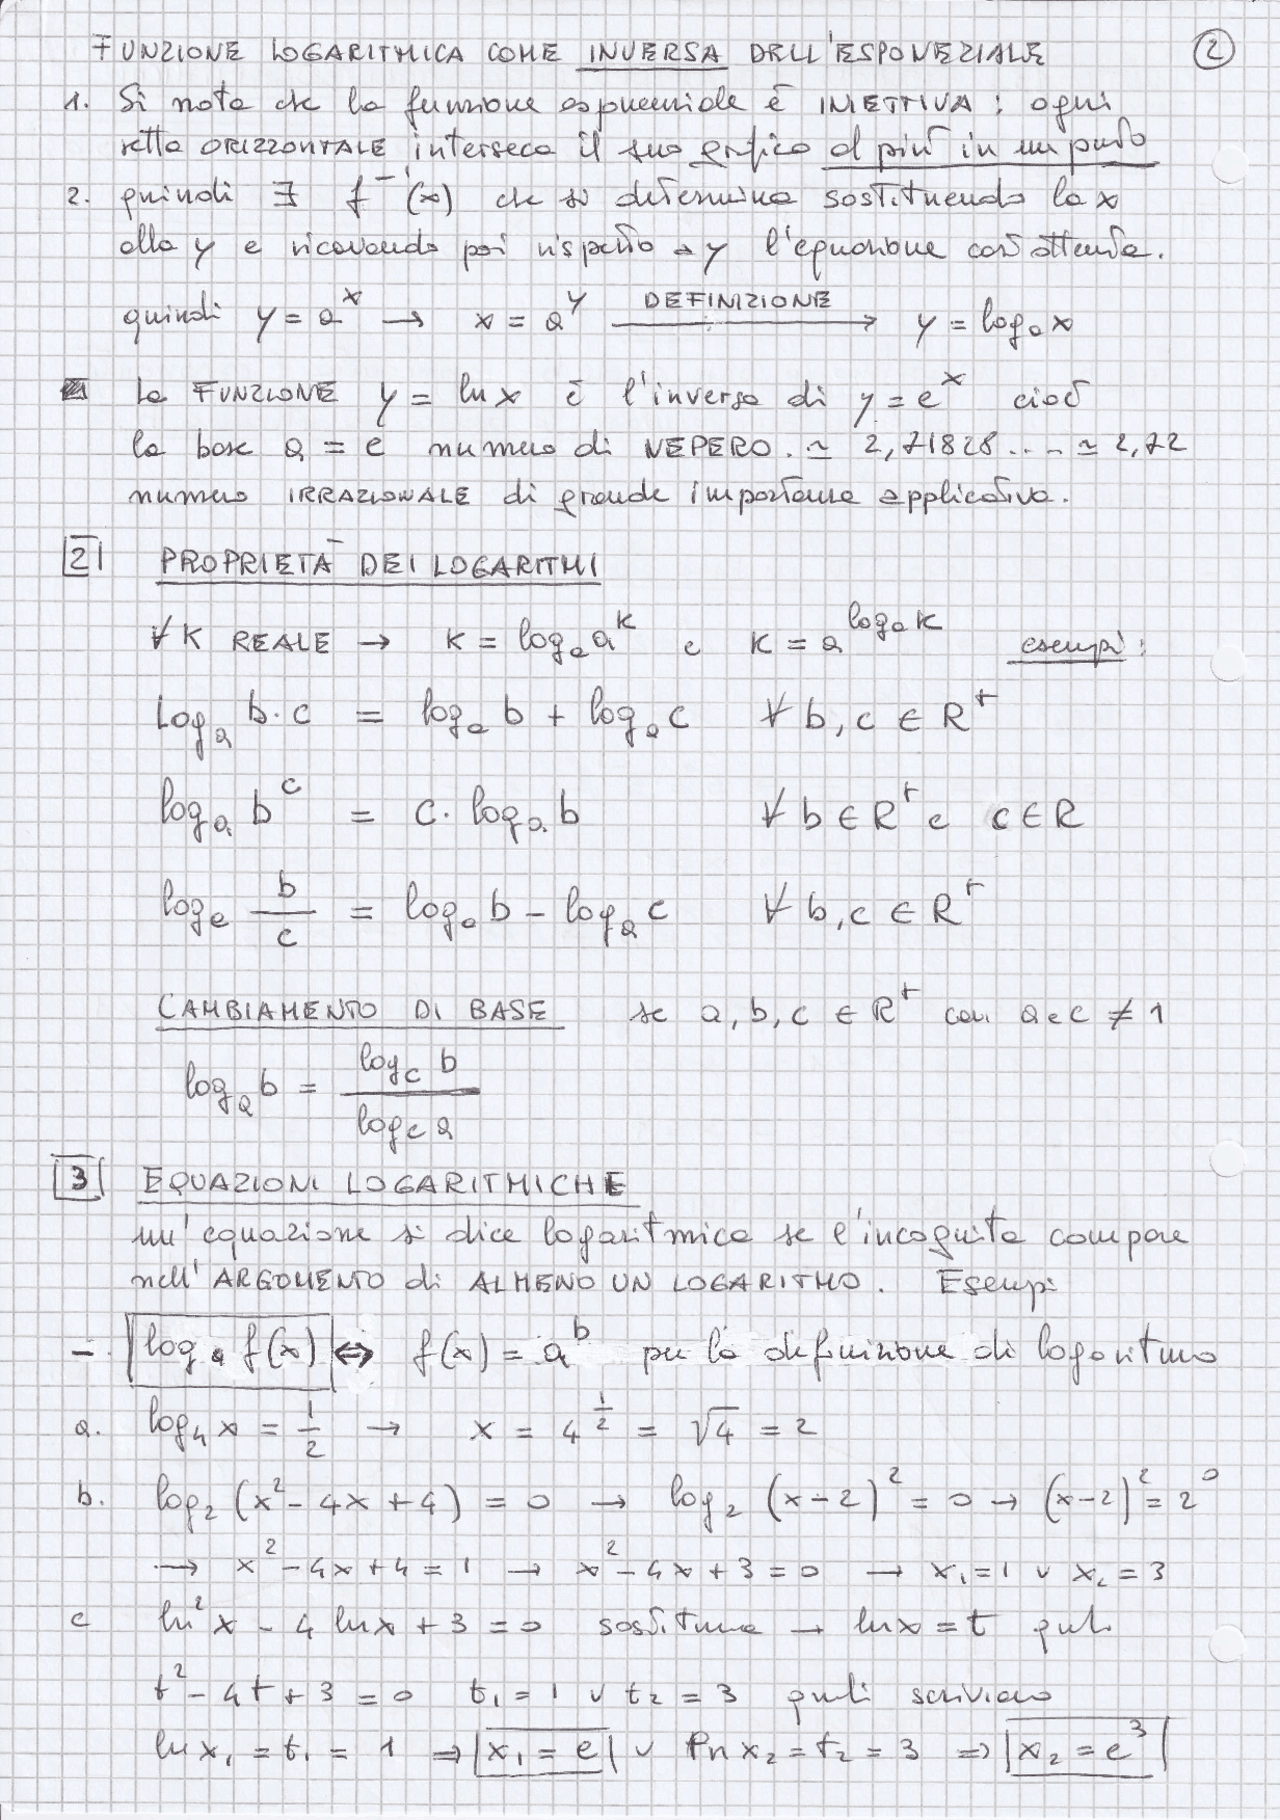 FUNZIONE LOGARITMICA COME INVERSA DELL'ESPONENZIALE ②
1. Si nota che la funzione esponenziale è INIETTIVA: ogni
retta ORIZZONTALE interseca il suo grafico al più in un punto
2. quindi ∃ f⁻¹(x) che si determina sostituendo la x
alla y e ricavando poi rispetto a y l'equazione così ottenuta.
quindi y = a^x → x = a^y DEFINIZIONE → y = log_a x
La FUNZIONE y = ln x è l'inversa di y = e^x cioè
la base a = e numero di NEPERO. ≃ 2,71828... ≃ 2,72
numero IRRAZIONALE di grande importanza applicativa.
2 PROPRIETÀ DEI LOGARITMI
∀ K REALE → K = log_a a^K e K = a^(log_a K) esempi:
Log_a b·c = log_a b + log_a c ∀ b, c ∈ R⁺
log_a b^c = c·log_a b ∀ b ∈ R⁺ e c ∈ R
log_a b/c = log_a b - log_a c ∀ b, c ∈ R⁺
CAMBIAMENTO DI BASE se a, b, c ∈ R⁺ con a e c ≠ 1
log_a b = log_c b / log_c a
3 EQUAZIONI LOGARITMICHE
un'equazione si dice logaritmica se l'incognita compare
nell'ARGOMENTO di ALMENO UN LOGARITMO. Esempi
- log_a f(x) ⇔ f(x) = a^b per la definizione di logaritmo
a. log_4 x = 1/2 → x = 4^(1/2) = √4 = 2
b. log_2 (x² - 4x + 4) = 0 → log_2 (x - 2)² = 0 → (x - 2)² = 2⁰
→ x² - 4x + 4 = 1 → x² - 4x + 3 = 0 → x₁ = 1 ∨ x₂ = 3
c ln² x - 4 ln x + 3 = 0 → ln x = t
t² - 4t + 3 = 0 t₁ = 1 ∨ t₂ = 3 scriviamo
ln x₁ = t₁ = 1 ⇒ x₁ = e ∨ ln x₂ = t₂ = 3 ⇒ x₂ = e³